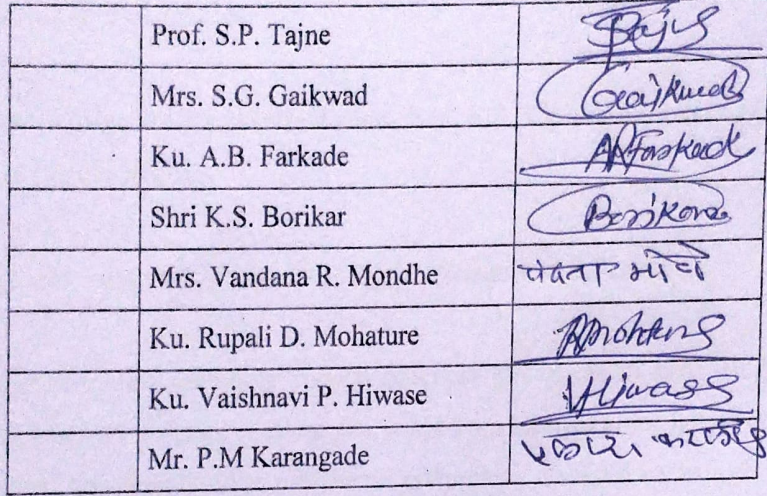 Prof. S.P. Tajne
Mrs. S.G. Gaikwad Gaikwad
Ku. A.B. Farkade ABFarkade
Shri K.S. Borikar Borikar
Mrs. Vandana R. Mondhe
Ku. Rupali D. Mohature
Ku. Vaishnavi P. Hiwase VHiwase
Mr. P.M Karangade